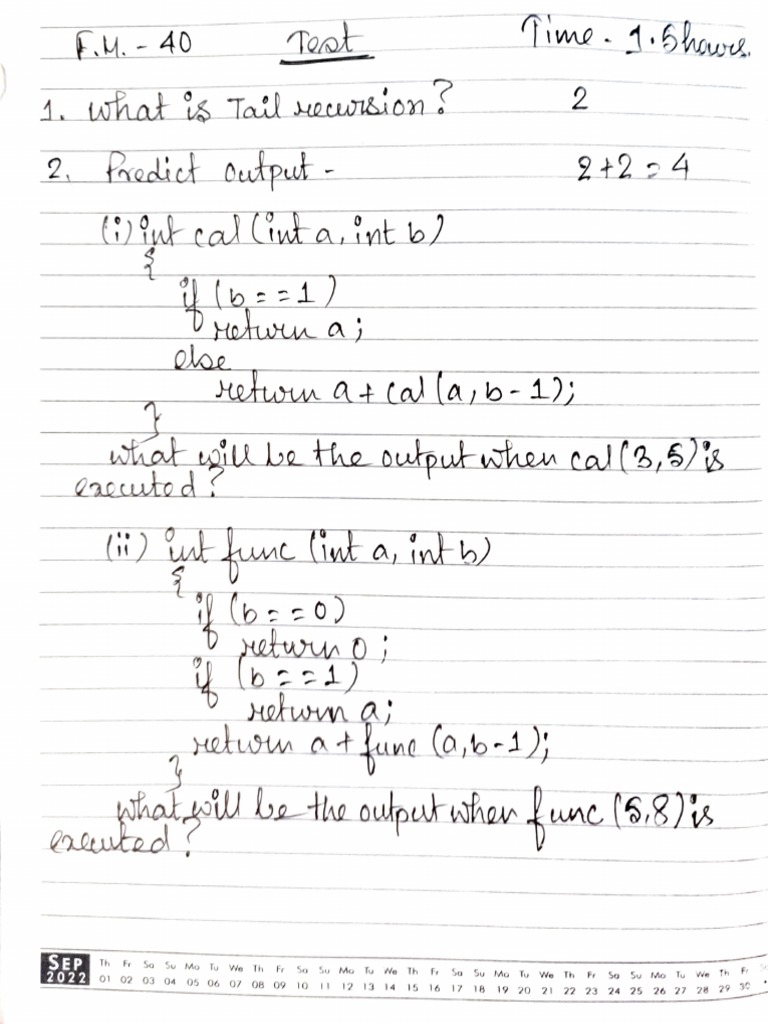 F.M. - 40 Test Time - 1.5 hours.
1. What is Tail recursion? 2
2. Predict output - 2+2=4
(i) int cal (int a, int b)
{
if (b==1)
return a;
else
return a + cal (a, b-1);
}
what will be the output when cal (3,5) is
executed?
(ii) int func (int a, int b)
{
if (b==0)
return 0;
if (b==1)
return a;
return a + func (a,b-1);
}
what will be the output when func (5,8) is
executed?
SEP
2022
Th Fr Sa Su Mo Tu We Th Fr Sa Su Mo Tu We Th Fr Sa Su Mo Tu We Th Fr Sa Su Mo Tu We Th Fr
01 02 03 04 05 06 07 08 09 10 11 12 13 14 15 16 17 18 19 20 21 22 23 24 25 26 27 28 29 30